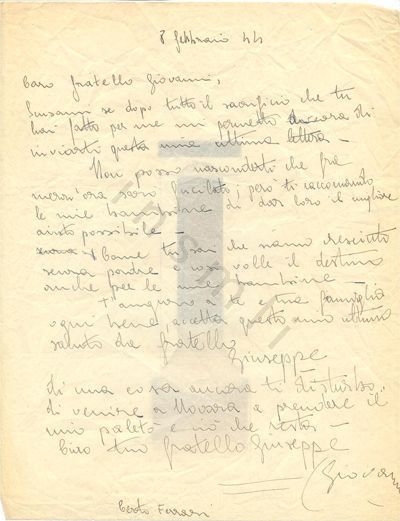 8 febbraio 44
Caro fratello Giovanni,
Scusami se dopo tutto il sacrificio che tu
hai fatto per me mi permetto ancora di
inviarti questa mia ultima lettera -
Non posso nasconderti che fra
mezz'ora sarò fucilato; però ti raccomando
le mie bambine di dar loro il migliore
aiuto possibile -
Come tu sai che siamo cresciuti
senza padre e così volle il destino
anche per le mie bambine -
T'auguro a te e tua famiglia
ogni bene accetta questo mio ultimo
saluto da fratello
Giuseppe
di una cosa ancora ti disturbo.
di venire a Novara a prendere il
mio paletò e ciò che resta -
Ciao tuo fratello Giuseppe
(Giovanni
Ferrari